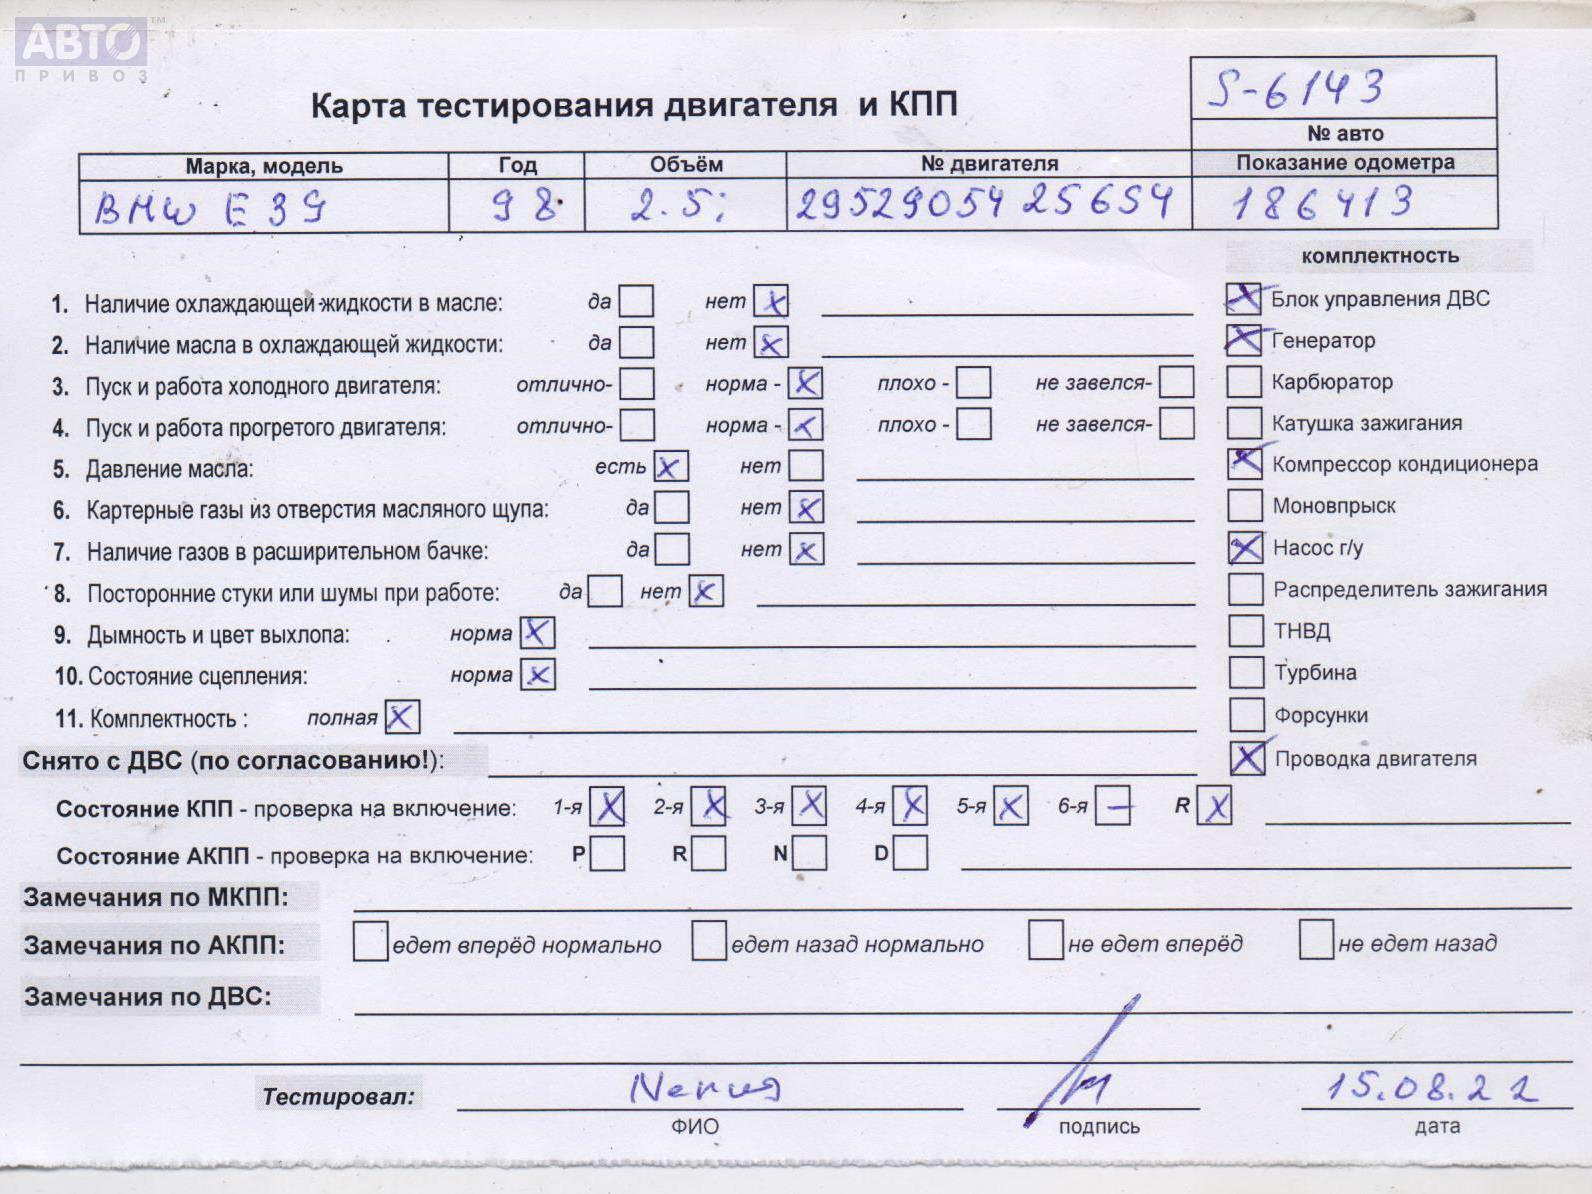 АВТО™
ПРИВОЗ
S-6143
Карта тестирования двигателя и КПП
№ авто
Марка, модель Год Объём № двигателя Показание одометра
BMW E39 98 2.5; 2952905425654 186413
комплектность
1. Наличие охлаждающей жидкости в масле: да нет x Блок управления ДВС
2. Наличие масла в охлаждающей жидкости: да нет x Генератор
3. Пуск и работа холодного двигателя: отлично- норма - x плохо - не завелся- Карбюратор
4. Пуск и работа прогретого двигателя: отлично- норма - x плохо - не завелся- Катушка зажигания
5. Давление масла: есть x нет Компрессор кондиционера
6. Картерные газы из отверстия масляного щупа: да нет x Моновпрыск
7. Наличие газов в расширительном бачке: да нет x Насос г/у
8. Посторонние стуки или шумы при работе: да нет x Распределитель зажигания
9. Дымность и цвет выхлопа: норма x ТНВД
10. Состояние сцепления: норма x Турбина
11. Комплектность : полная x Форсунки
Снято с ДВС (по согласованию!): Проводка двигателя
Состояние КПП - проверка на включение: 1-я x 2-я x 3-я x 4-я x 5-я x 6-я – R x
Состояние АКПП - проверка на включение: P R N D
Замечания по МКПП:
Замечания по АКПП: едет вперёд нормально едет назад нормально не едет вперёд не едет назад
Замечания по ДВС:
Тестировал: 15.08.22
ФИО подпись дата